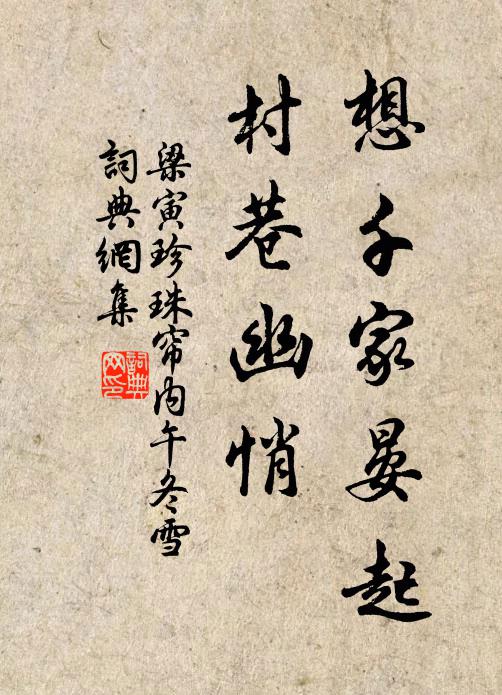 想千家晏起
村巷幽悄
梁寅珍珠帘内午冬雪
詞典網集
詞典
网印